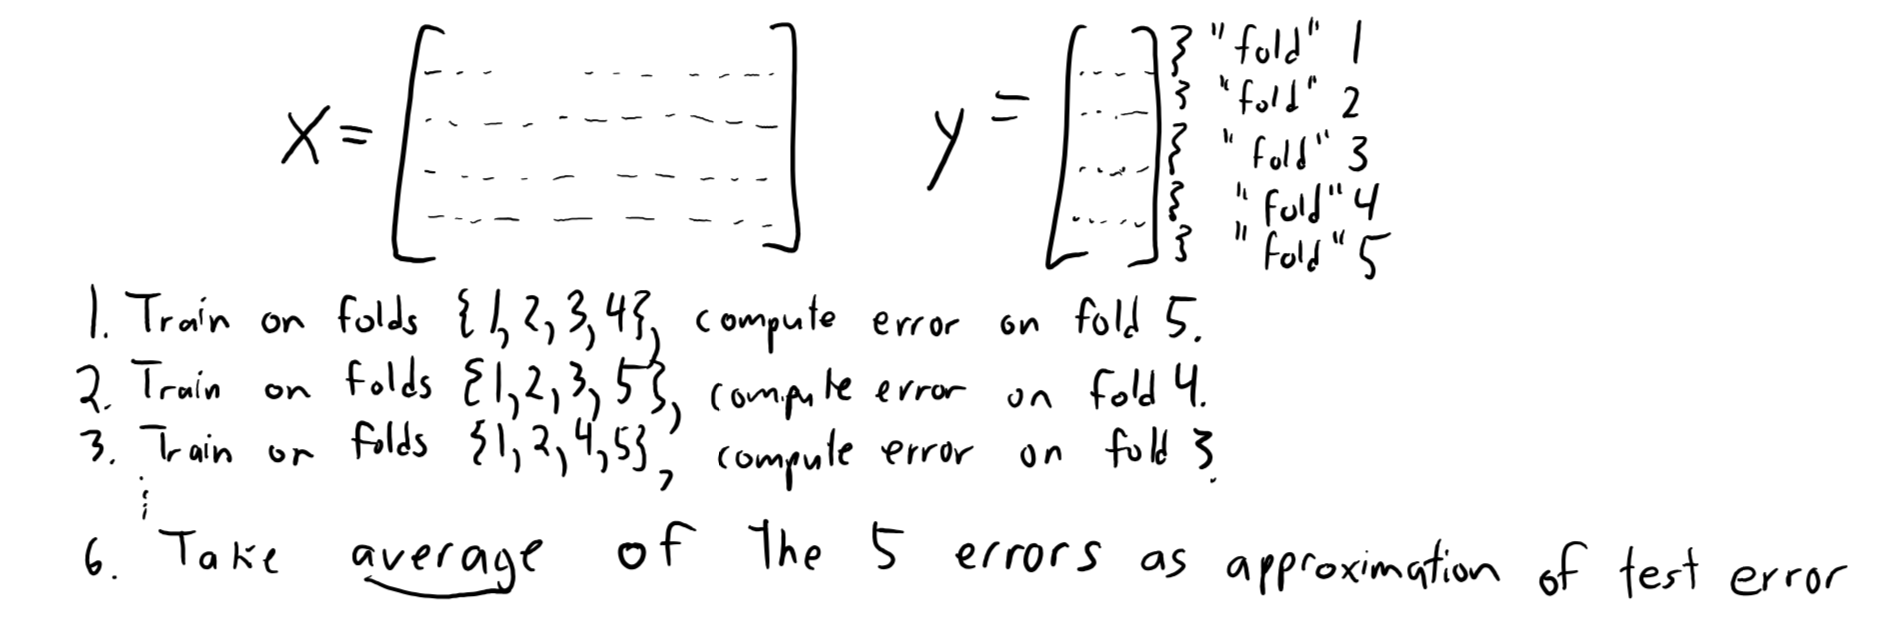 X = y = } "fold" 1
} "fold" 2
} "fold" 3
} "fold" 4
} "fold" 5
1. Train on folds {1,2,3,4}, compute error on fold 5.
2. Train on folds {1,2,3,5}, compute error on fold 4.
3. Train on folds {1,2,4,5}, compute error on fold 3.
⋮
6. Take average of the 5 errors as approximation of test error